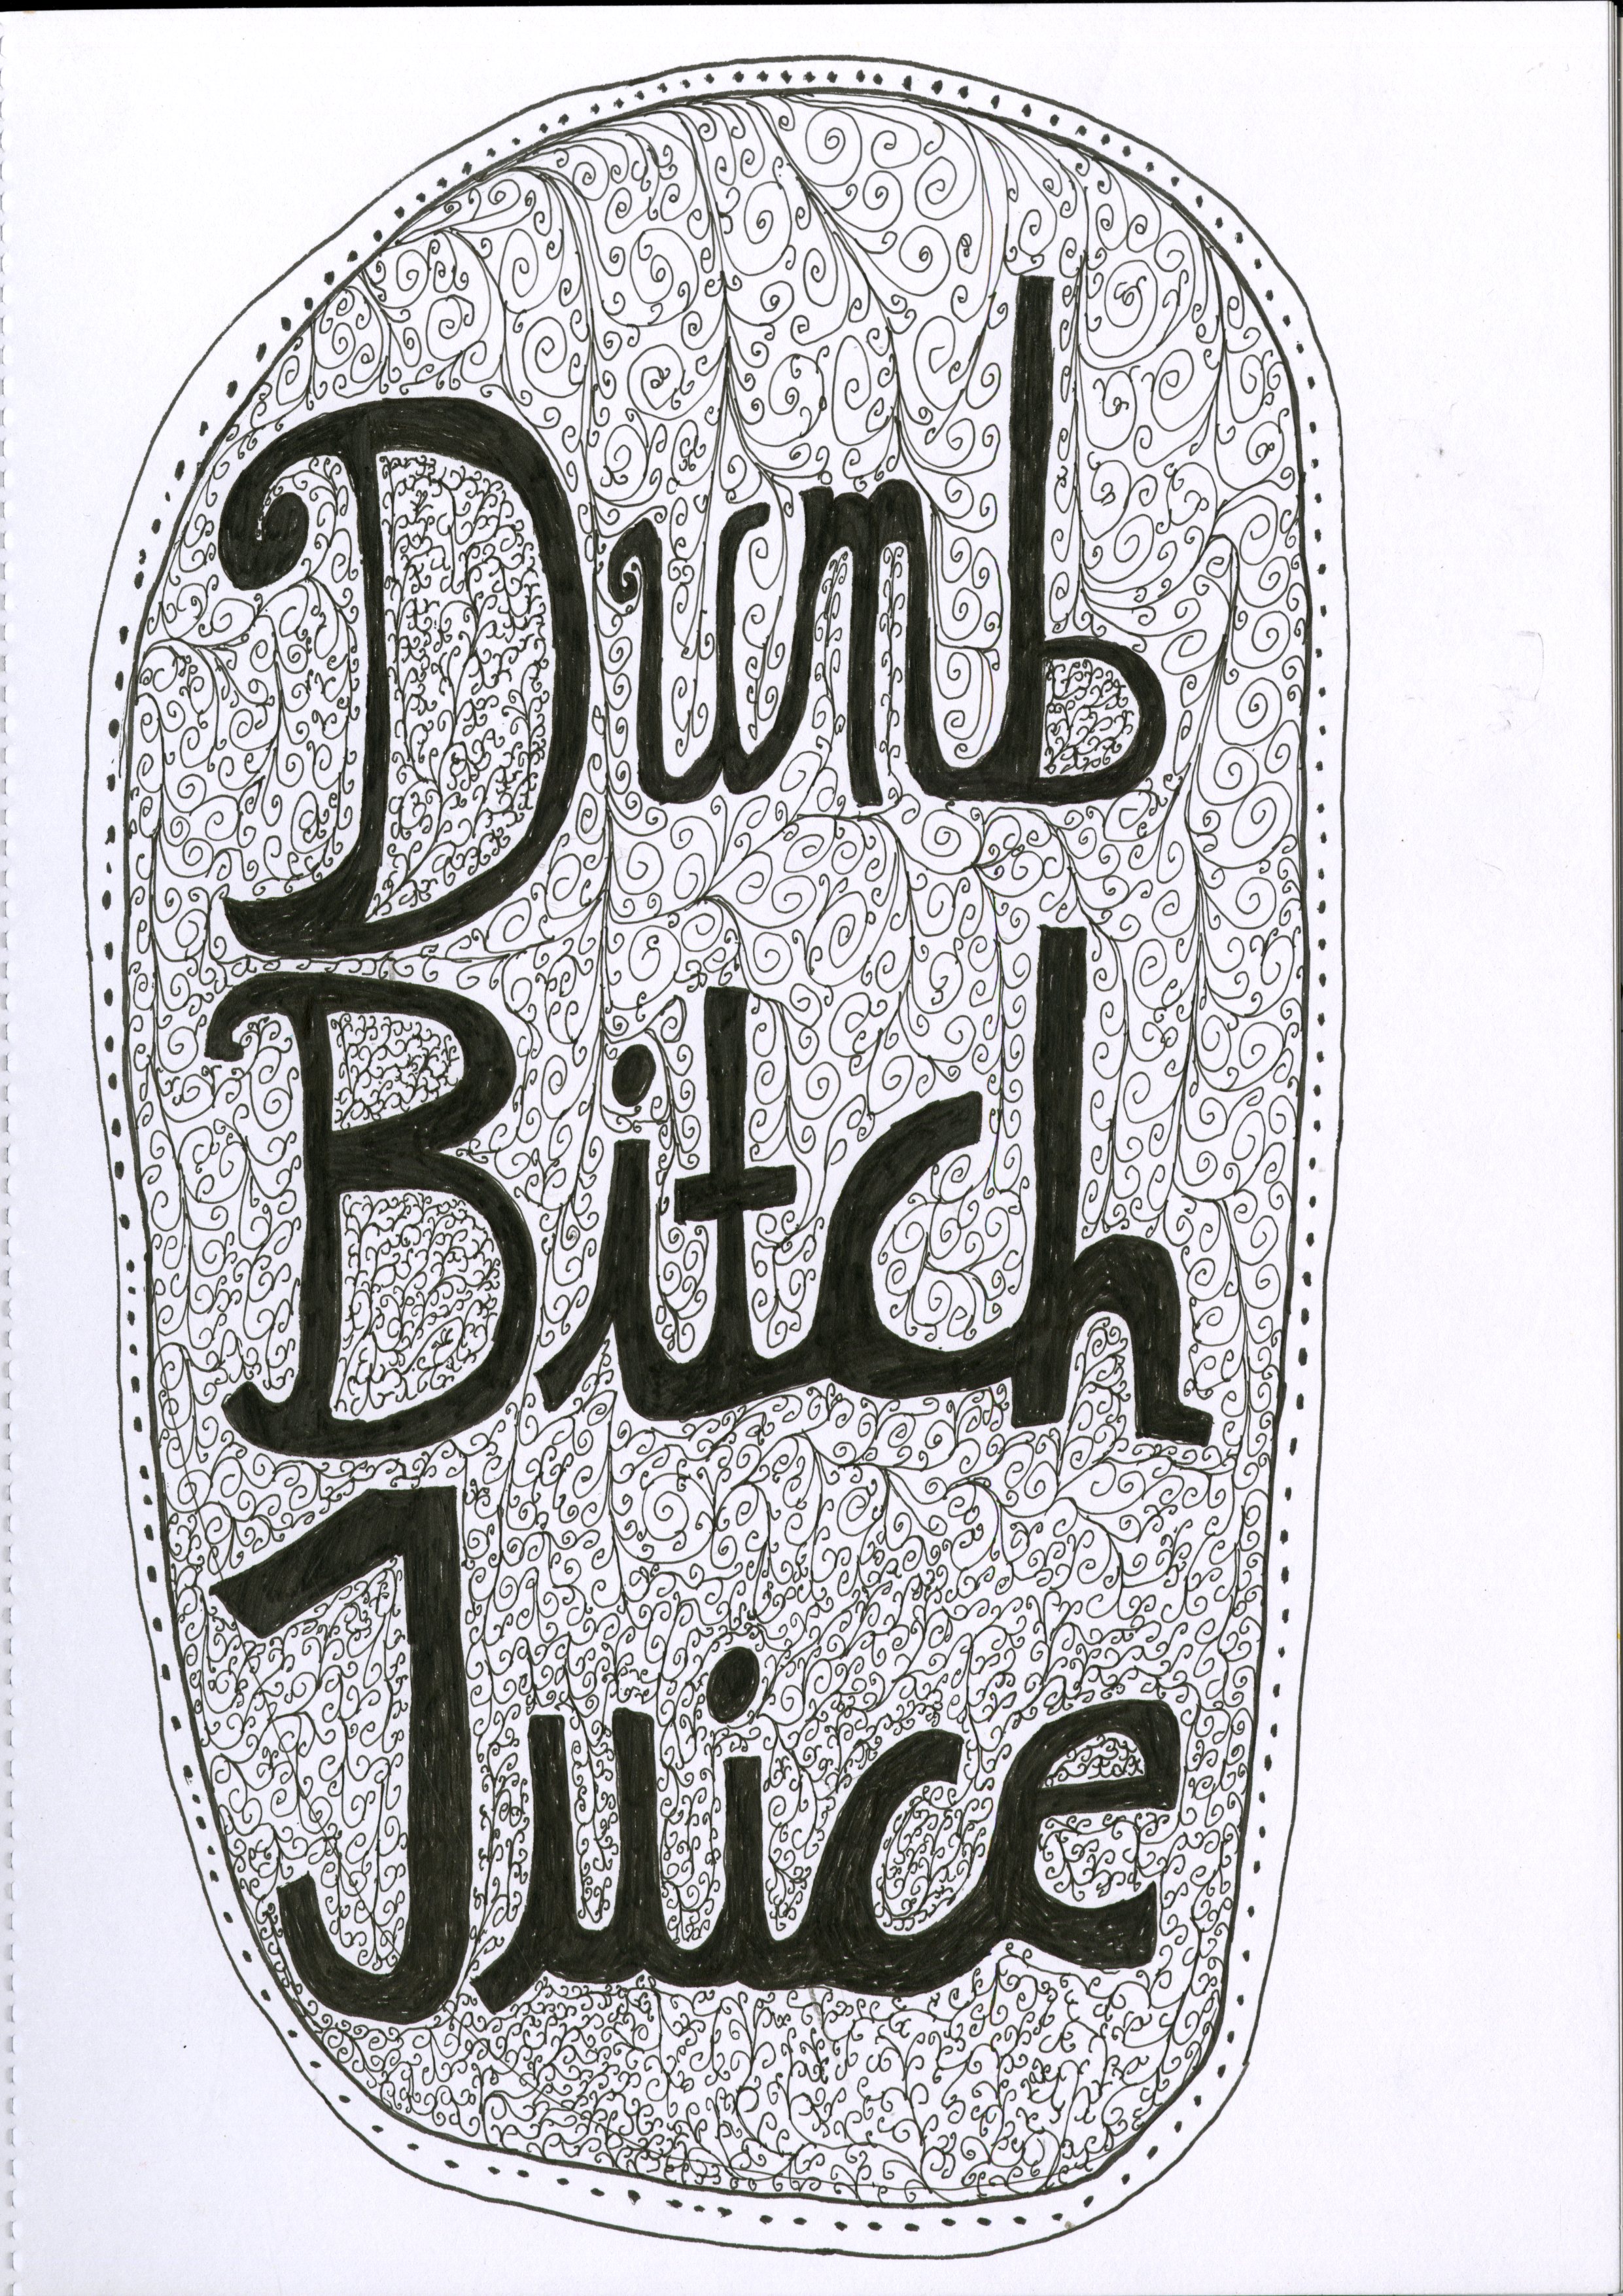 Dumb
Bitch
Juice